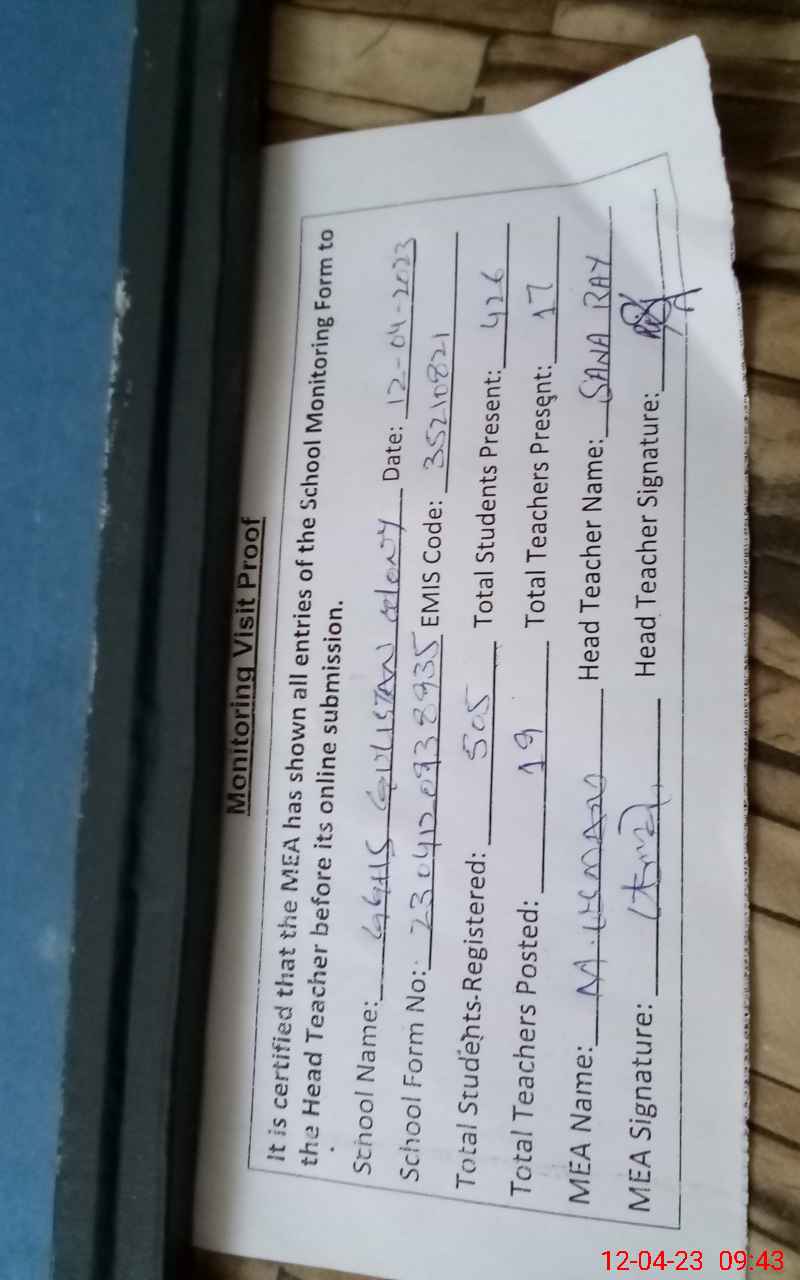 Monitoring Visit Proof
It is certified that the MEA has shown all entries of the School Monitoring Form to
the Head Teacher before its online submission.
School Name: GGHS GULISTAN COLONY Date: 12-04-2023
School Form No: 2304120938935 EMIS Code: 35210821
Total Students Registered: 505 Total Students Present: 426
Total Teachers Posted: 19 Total Teachers Present: 17
MEA Name: M. USMAN Head Teacher Name: SANA RAY
MEA Signature: Head Teacher Signature:
12-04-23 09:43